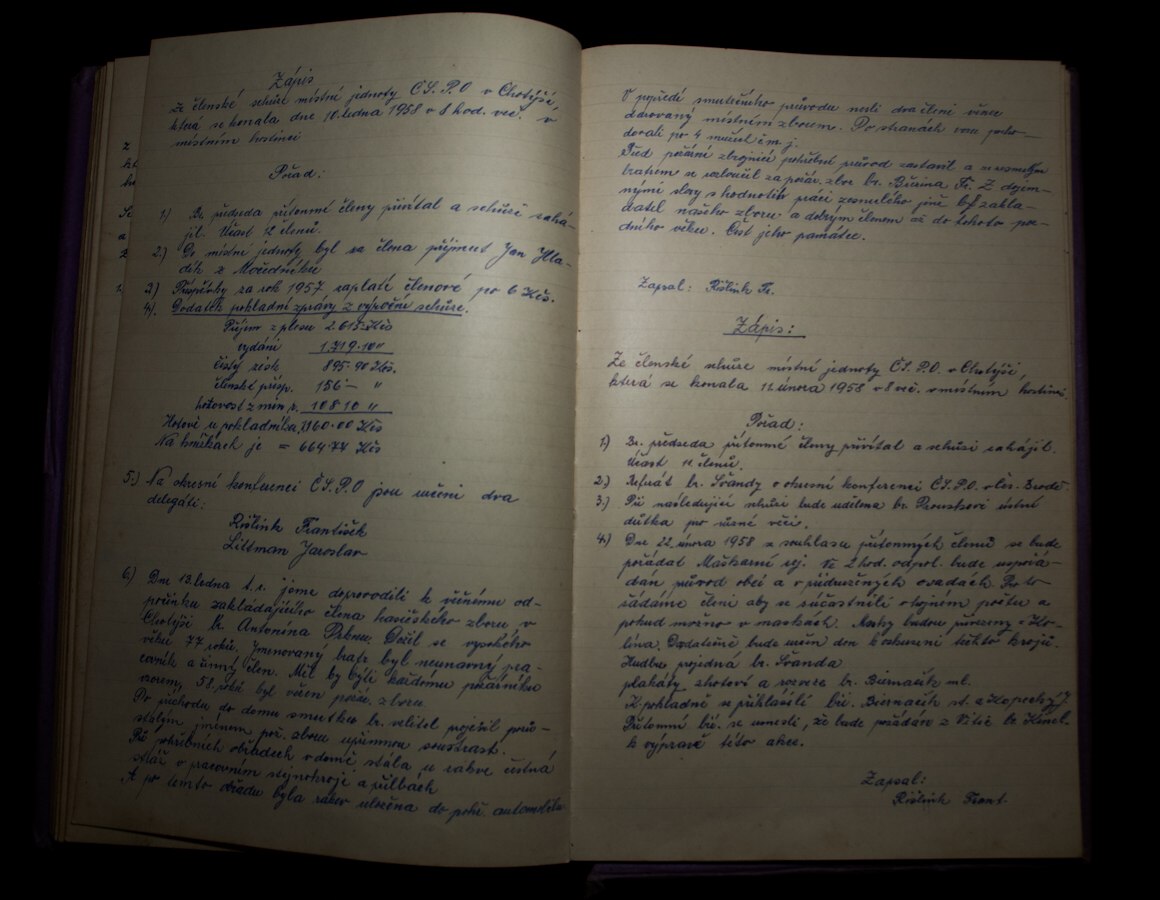 Zápis
ze členské schůze místní jednoty ČS.P.O v Chotýši,
která se konala dne 10. ledna 1958 v 8 hod. več. v
místním hostinci
Pořad:
1.) Br. předseda přítomné členy přivítal a schůzi zahá-
jil. Účast 12 členů.
2.) Do místní jednoty byl za člena přijmut Jan Hla-
dík z Močedníku
3.) Příspěvky za rok 1957 zaplatí členové po 6 Kčs.
4.) Dodatek pokladní zprávy z výroční schůze.
Příjem z plesu 2.615 Kčs
vydání 1.719.10 "
čistý zisk 895.90 Kčs.
členské přísp. 156 — "
hotovost z min. r. 108 10 "
Hotově u pokladníka 1160.00 Kčs
Na knížkách je = 664.74 Kčs
5.) Na okresní konferenci ČS.P.O jsou určeni dva
delegáti:
Rišlink František
Littman Jaroslav
6.) Dne 13. ledna t.r. jsme doprovodili k věčnému od-
počinku zakládajícího člena hasičského zboru v
Chotýši br. Antonína Dožil se vysokého
věku 77 roků. Jmenovaný bratr byl neunavný pra-
covník a činný člen. Měl by býti každému požárníku
vzorem, 58 roků byl věren požár. zboru.
Po příchodu do domu smutku br. velitel potěšil pozů-
stalým jménem pož. zboru upřímnou soustrast.
Při pohřebních obřadech v domě stála u rakve čestná
stráž v pracovním stejnokroji a přilbách
A po temto obřadu byla rakev uložena do pohř. automobilu
V popředí smutečního průvodu nesli dva členi věnec
darovaný místním zborem. Po stranách vozu pocho-
dovali po 4 mužích m.j.
Před požární zbrojnicí pohřební průvod zastavil a se zesnulým
bratrem se rozloučil za požár. zbor br. Bučina Fr. Z dojem-
nými slovy zhodnotil práci zesnulého jenž byl zakla-
datel našeho zboru a dobrým členem až do tohoto po-
sdního věku. Čest jeho památce.
Zapsal: Rišlink Fr.
Zápis:
Ze členské schůze místní jednoty ČS.P.O. v Chotýši,
která se konala 11. února 1958 v 8 več. v místním hostinci.
Pořad:
1.) Br. předseda přítomné členy přivítal a schůzi zahájil.
Účast 11 členů.
2.) Referát br. Švandy o okresní konferenci ČS.P.O. v Čes. Brodě.
3.) Při následující schůzi bude udělena br. Drouskovi ústní
důtka pro různé věci.
4.) Dne 22. února 1958 z souhlasu přítomných členů se bude
pořádat Maškarní rej. Ve 2 hod. odpol. bude uspořá-
dán průvod obcí a v přidružených osadách. Proto
žádáme členi aby se súčastnili v hojném počtu a
pokud možno v maskách. Masky budou půjčeny z Ko-
lína. Dodatečně bude určen den k zkoušení těchto krojů.
Hudbu pojedná br. Švanda
plakáty zhotoví a rozveze br. Biernacik ml.
K pokladně se přihlásili bři. Biernacik st. a Klopecký J.
Přítomní bři. se usnesli, že bude požádán z Vitic br. Kimel.
k výpravě této akce.
Zapsal:
Rišlink Frant.